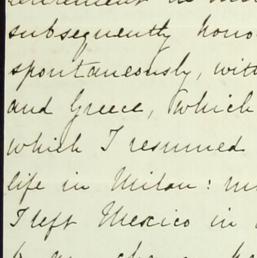 retirement
subsequently hono
spontaneously, wit
and Greece, which
which I resumed
life in Milan: m
I left Mexico in